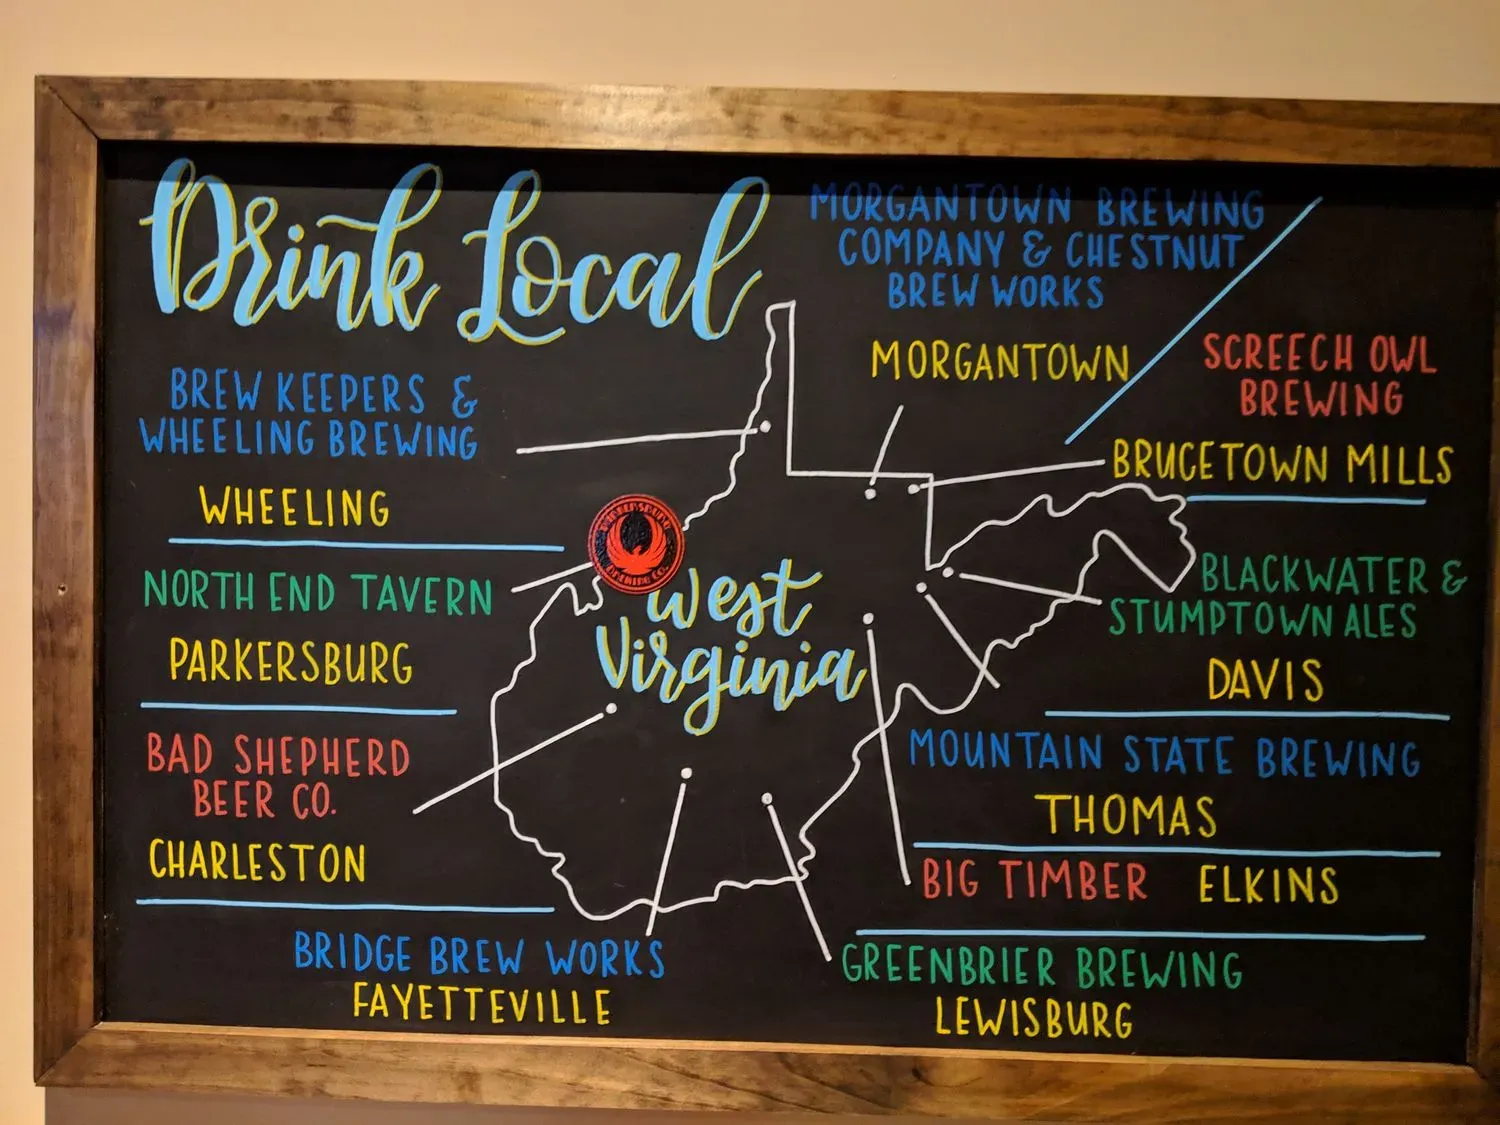 Drink Local
MORGANTOWN BREWING
COMPANY & CHESTNUT
BREW WORKS
MORGANTOWN
SCREECH OWL
BREWING
BRUCETOWN MILLS
BREW KEEPERS &
WHEELING BREWING
WHEELING
PARKERSBURG
BREWING CO.
NORTH END TAVERN
PARKERSBURG
West
Virginia
BLACKWATER &
STUMPTOWN ALES
DAVIS
BAD SHEPHERD
BEER CO.
CHARLESTON
MOUNTAIN STATE BREWING
THOMAS
BIG TIMBER ELKINS
BRIDGE BREW WORKS
FAYETTEVILLE
GREENBRIER BREWING
LEWISBURG